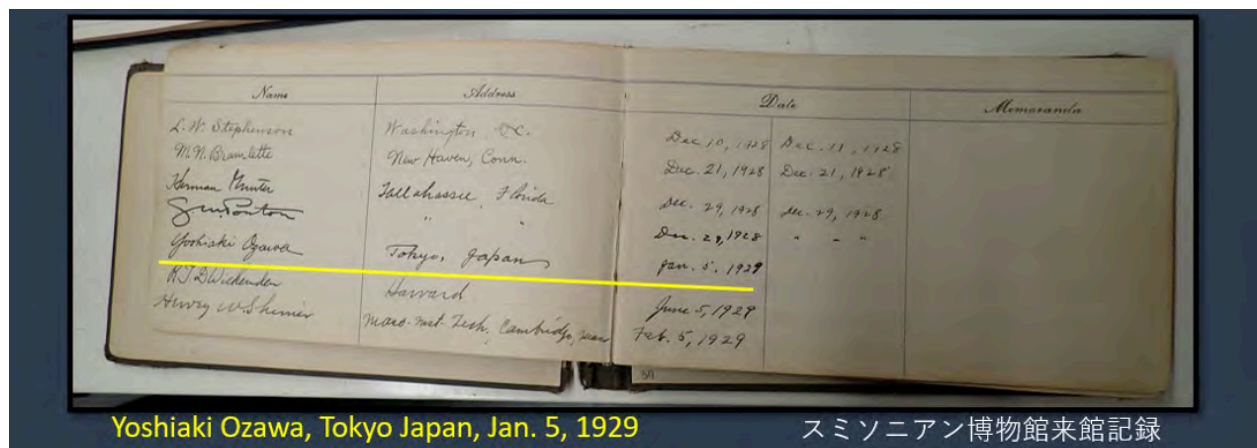 Name Address Date Memoranda
L. W. Stephenson Washington D.C. Dec 10, 1928 Dec. 11, 1928
M. N. Bramlette New Haven, Conn. Dec. 21, 1928 Dec. 21, 1928
Herman Gunter Tallahassee, Florida Dec. 29, 1928 Dec. 29, 1928
" " Dec. 29, 1928 " " "
Yoshiaki Ozawa Tokyo, Japan Jan. 5, 1929
R.T.D. Wickenden Harvard June 5, 1929
Henry W. Shimer Mass. Inst. Tech., Cambridge, Mass Feb. 5, 1929
Yoshiaki Ozawa, Tokyo Japan, Jan. 5, 1929
スミソニアン博物館来館記録